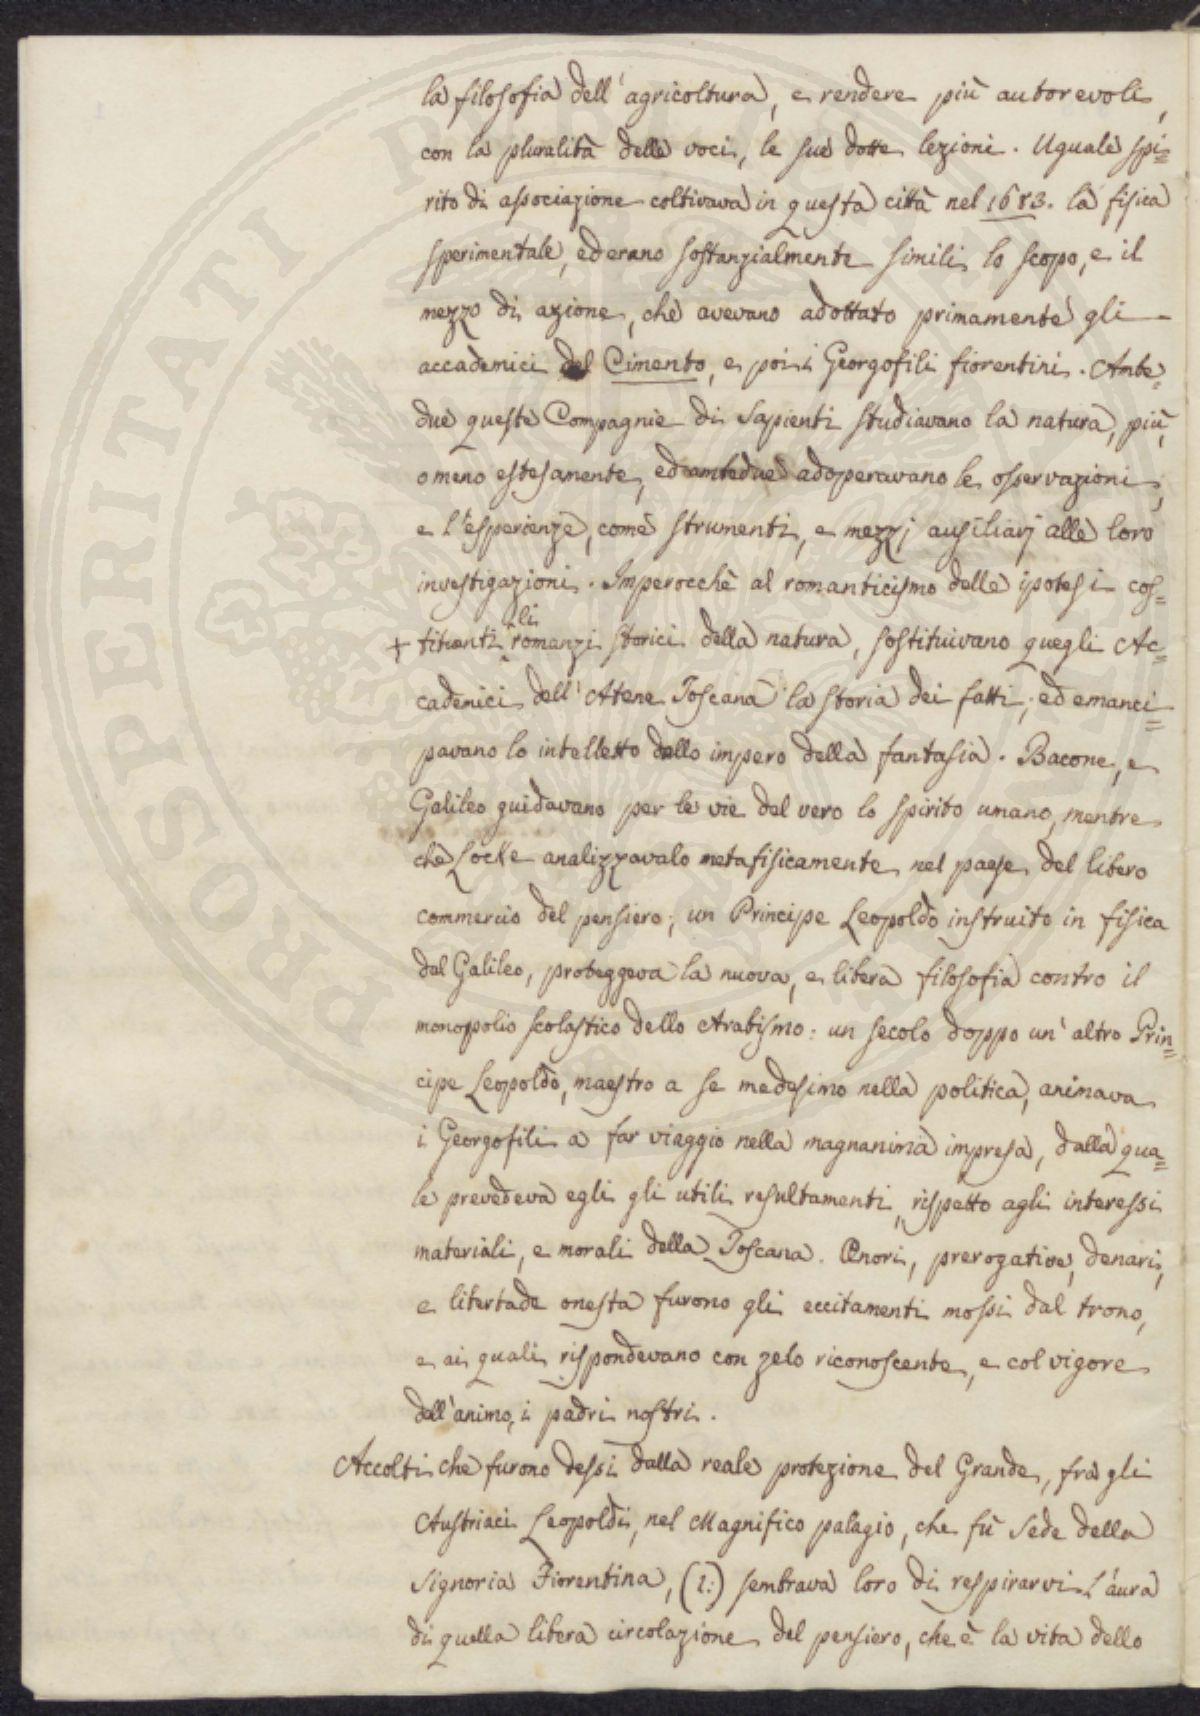 la filosofia dell'agricoltura, e rendere più autorevoli,
con la pluralità delle voci, le sue dotte lezioni. Uguale spi=
rito di associazione coltivava in questa città nel 1683. la fisica
sperimentale, ed erano sostanzialmente simili lo scopo, e il
mezzo di azione, che avevano adottato primamente gli
accademici del Cimento, e poi i Georgofili fiorentini. Ambe=
due queste Compagnie di Sapienti studiavano la natura, più,
o meno estesamente, ed ambedue adoperavano le osservazioni,
e l'esperienze, come strumenti, e mezzj ausiliarj alle loro
investigazioni. Imperocchè al romanticismo delle ipotesi cos=
+ tituenti li romanzi storici della natura, sostituivano quegli Ac=
cademici dell'Atene Toscana la storia dei fatti; ed emanci=
pavano lo intelletto dallo impero della fantasia. Bacone, e
Galileo guidavano per le vie del vero lo spirito umano, mentre
che Locke analizzavalo metafisicamente nel paese del libero
commercio del pensiero; un Principe Leopoldo instruito in fisica
dal Galileo, proteggeva la nuova, e libera filosofia contro il
monopolio scolastico dello Arabismo: un secolo doppo un'altro Prin=
cipe Leopoldo, maestro a se medesimo nella politica, animava
i Georgofili a far viaggio nella magnanima impresa, dalla qua=
le prevedeva egli gli utili resultamenti, rispetto agli interessi
materiali, e morali della Toscana. Onori, prerogative, denari,
e libertade onesta furono gli eccitamenti mossi dal trono,
e ai quali rispondevano con zelo riconoscente, e col vigore
dell'animo, i padri nostri.
Accolti che furono dessi dalla reale protezione del Grande, frà gli
Austriaci Leopoldi, nel Magnifico palagio, che fù Sede della
Signoria Fiorentina, (1:) sembrava loro di respirarvi l'aura
di quella libera circolazione del pensiero, che è la vita dello
PROSPERITATI PUBLICAE